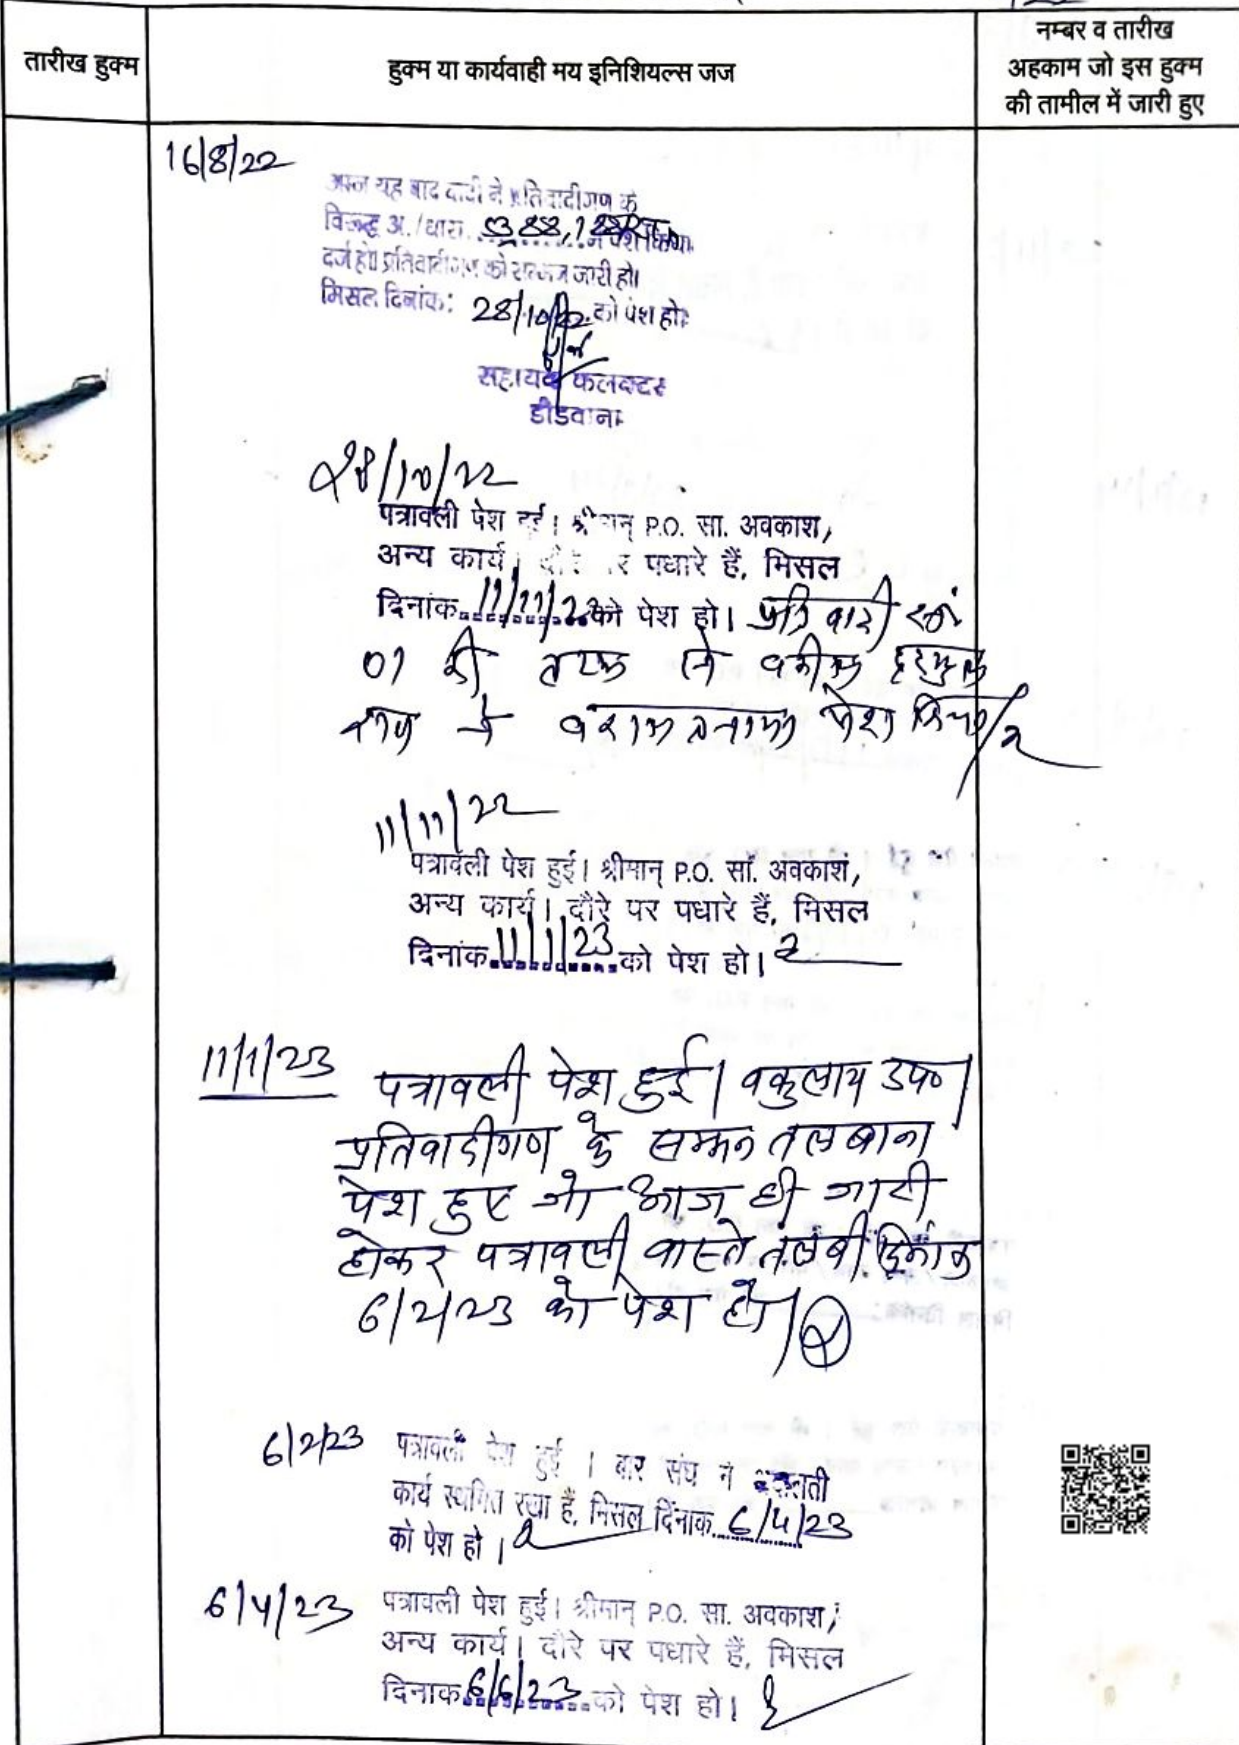 तारीख हुक्म
हुक्म या कार्यवाही मय इनिशियल्स जज
नम्बर व तारीख
अहकाम जो इस हुक्म
की तामील में जारी हुए
16/8/22
यह वाद वादी ने प्रतिवादीगण के
विरूद्ध अ./धारा. पेश किया
दर्ज हो। प्रतिवादीगण को सम्मन जारी हो।
मिसल दिनांक: 28/10/22 को पेश हो।
सहायक कलक्टर
डीडवाना
28/10/22
पत्रावली पेश हुई। श्रीमान् P.O. सा. अवकाश,
अन्य कार्य। दौरे पर पधारे हैं, मिसल
दिनांक 11/11/22 को पेश हो। प्रतिवादी सं
01 की तरफ से वकील
ने वकालतनामा पेश किया।
11/11/22
पत्रावली पेश हुई। श्रीमान् P.O. सा. अवकाश,
अन्य कार्य। दौरे पर पधारे हैं, मिसल
दिनांक 11/1/23 को पेश हो।
11/1/23 पत्रावली पेश हुई। वकुलाय उप०।
प्रतिवादीगण के सम्मन तलबाना
पेश हुए जो आज ही जारी
होकर पत्रावली वास्ते तलबी दिनांक
6/2/23 को पेश हो।
6/2/23 पत्रावली पेश हुई । बार संघ ने
कार्य स्थगित रखा हैं, मिसल दिनांक 6/4/23
को पेश हो ।
6/4/23 पत्रावली पेश हुई। श्रीमान् P.O. सा. अवकाश,
अन्य कार्य। दौरे पर पधारे हैं, मिसल
दिनांक 6/6/23 को पेश हो।